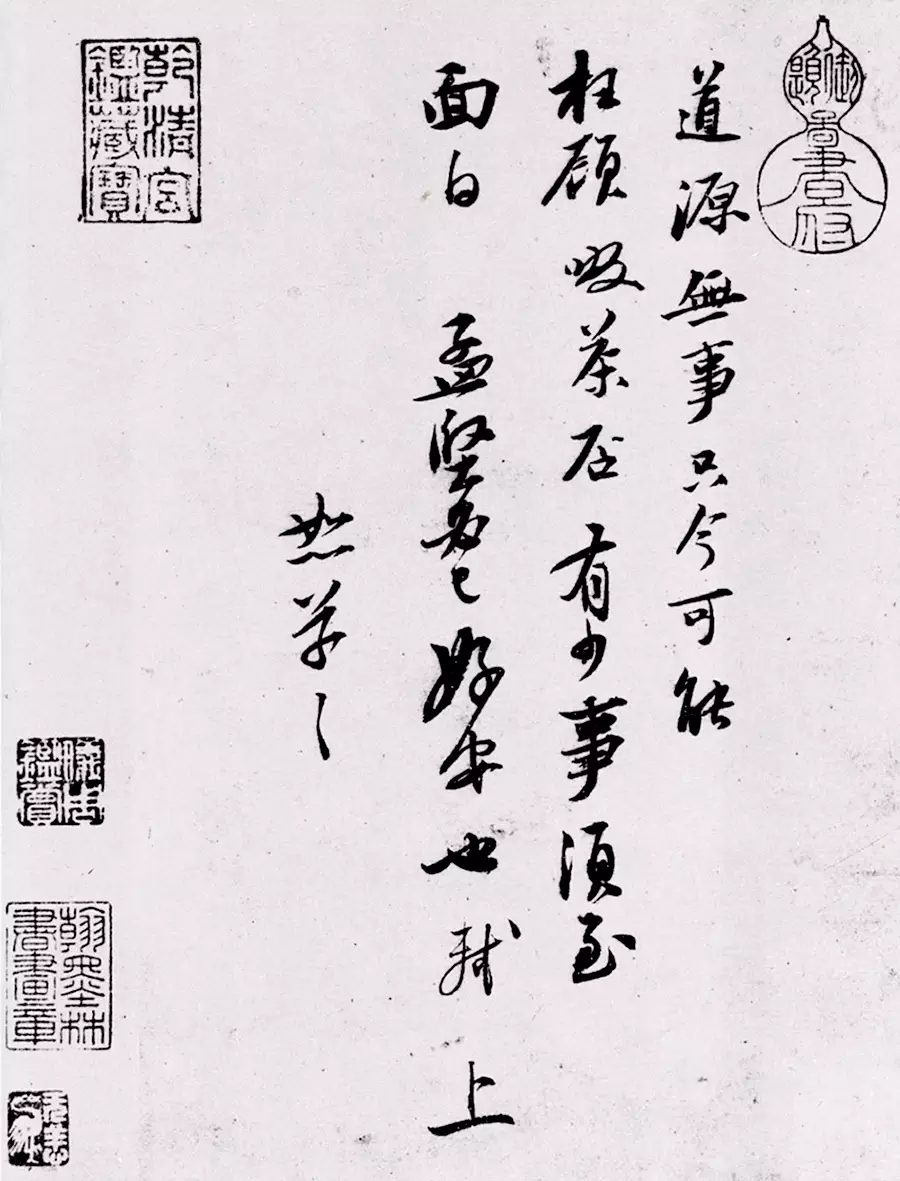 道源無事只今可能
枉顧啜茶否有少事須至
面白孟堅必已好安也軾上
恕草草
御題
書府
乾清宮
鑑藏寶
儀周
鑑賞
翰墨林
書畫章